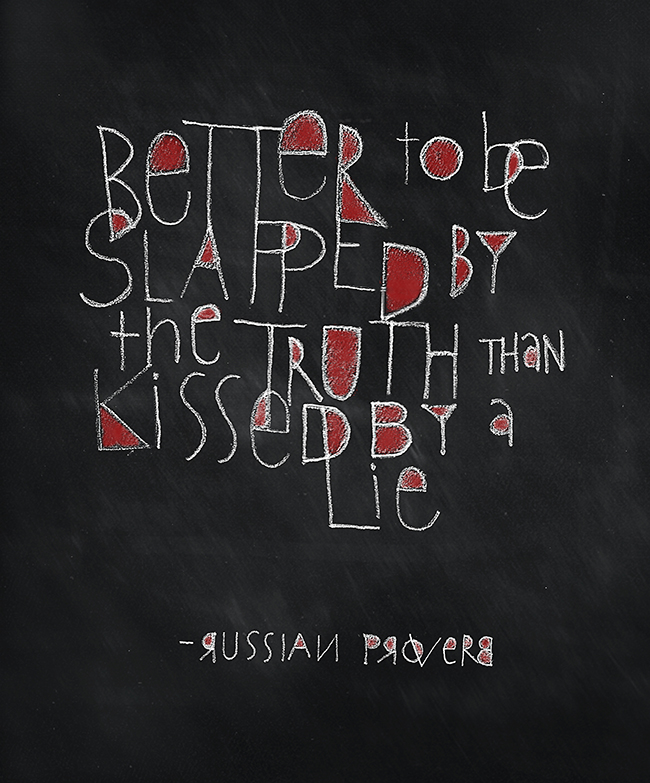 BeTTeR to be
SLAPPED BY
the TRUTH THaN
KissedBY a
Lie
-RUSSIAN PROVeRB